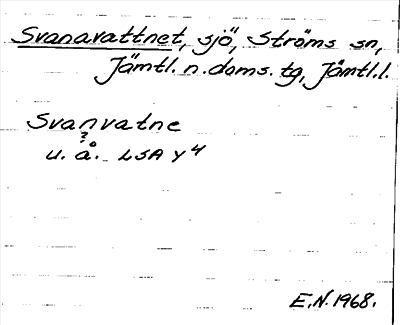 Svanavattnet, sjö, Ströms sn,
Jämtl. n. doms. tg, Jämtl.l.
Svanvatne
?
u. å. LSA Y4
E.N. 1968.